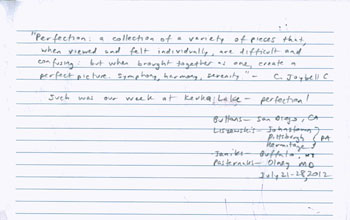 "Perfection: a collection of a variety of pieces that,
when viewed and felt individually, are difficult and
confusing: but when brought together as one, create a
perfect picture. Symphony, harmony, serenity." - C. Joybell C
Such was our week at Lake - perfection!
Buttons - San Diego, CA
Johnstown
Pittsburgh PA
Hermitage
Buffalo, NY
Olney MD
July 21-28, 2012